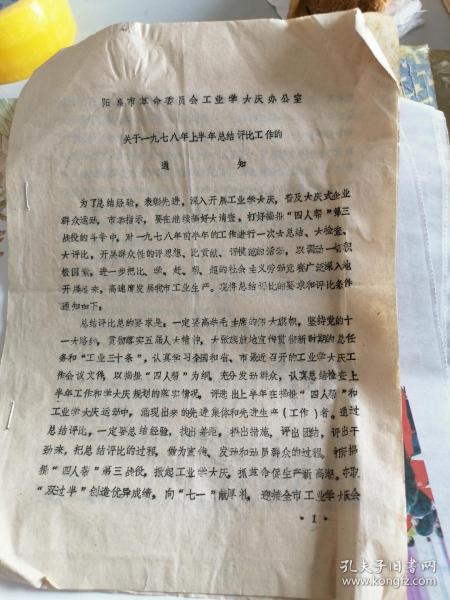 阳泉市革命委员会工业学大庆办公室
关于一九七八年上半年总结评比工作的
通知
为了总结经验，表彰先进，深入开展工业学大庆，普及大庆式企业
群众运动，市委指示，要在继续搞好大清查，打好揭批“四人帮”第三
战役的斗争中，对一九七八年前半年的工作进行一次大总结、大检查、
大评比，开展群众性的评思想、比贡献、评模范的活动，以调动一切积
极因素，进一步把比、学、赶、帮、超的社会主义劳动竞赛广泛深入地
开展起来，高速度发展我市工业生产。现将总结评比的要求和评比条件
通知如下：
总结评比总的要求是：一定要高举毛主席的伟大旗帜，坚持党的十
一大路线，贯彻落实五届人大精神，大张旗鼓地宣传贯彻新时期的总任
务和“工业三十条”，认真学习全国和省、市最近召开的工业学大庆工
作会议文件，以揭批“四人帮”为纲，充分发动群众，认真总结检查上
半年工作和学大庆规划的落实情况，评选出上半年在揭批“四人帮”和
工业学大庆运动中，涌现出来的先进集体和先进生产（工作）者。通过
总结评比，一定要总结经验，找出差距，拟出措施，评出团结，评出干
劲来，把总结评比的过程，做为宣传、发动和动员群众的过程，打好揭
批“四人帮”第三战役，掀起工业学大庆，抓革命促生产新高潮，夺取
“双过半”创造优异成绩，向“七一”献厚礼，迎接全市工业学大庆会
·1·
孔夫子旧书网
www.kongfz.com